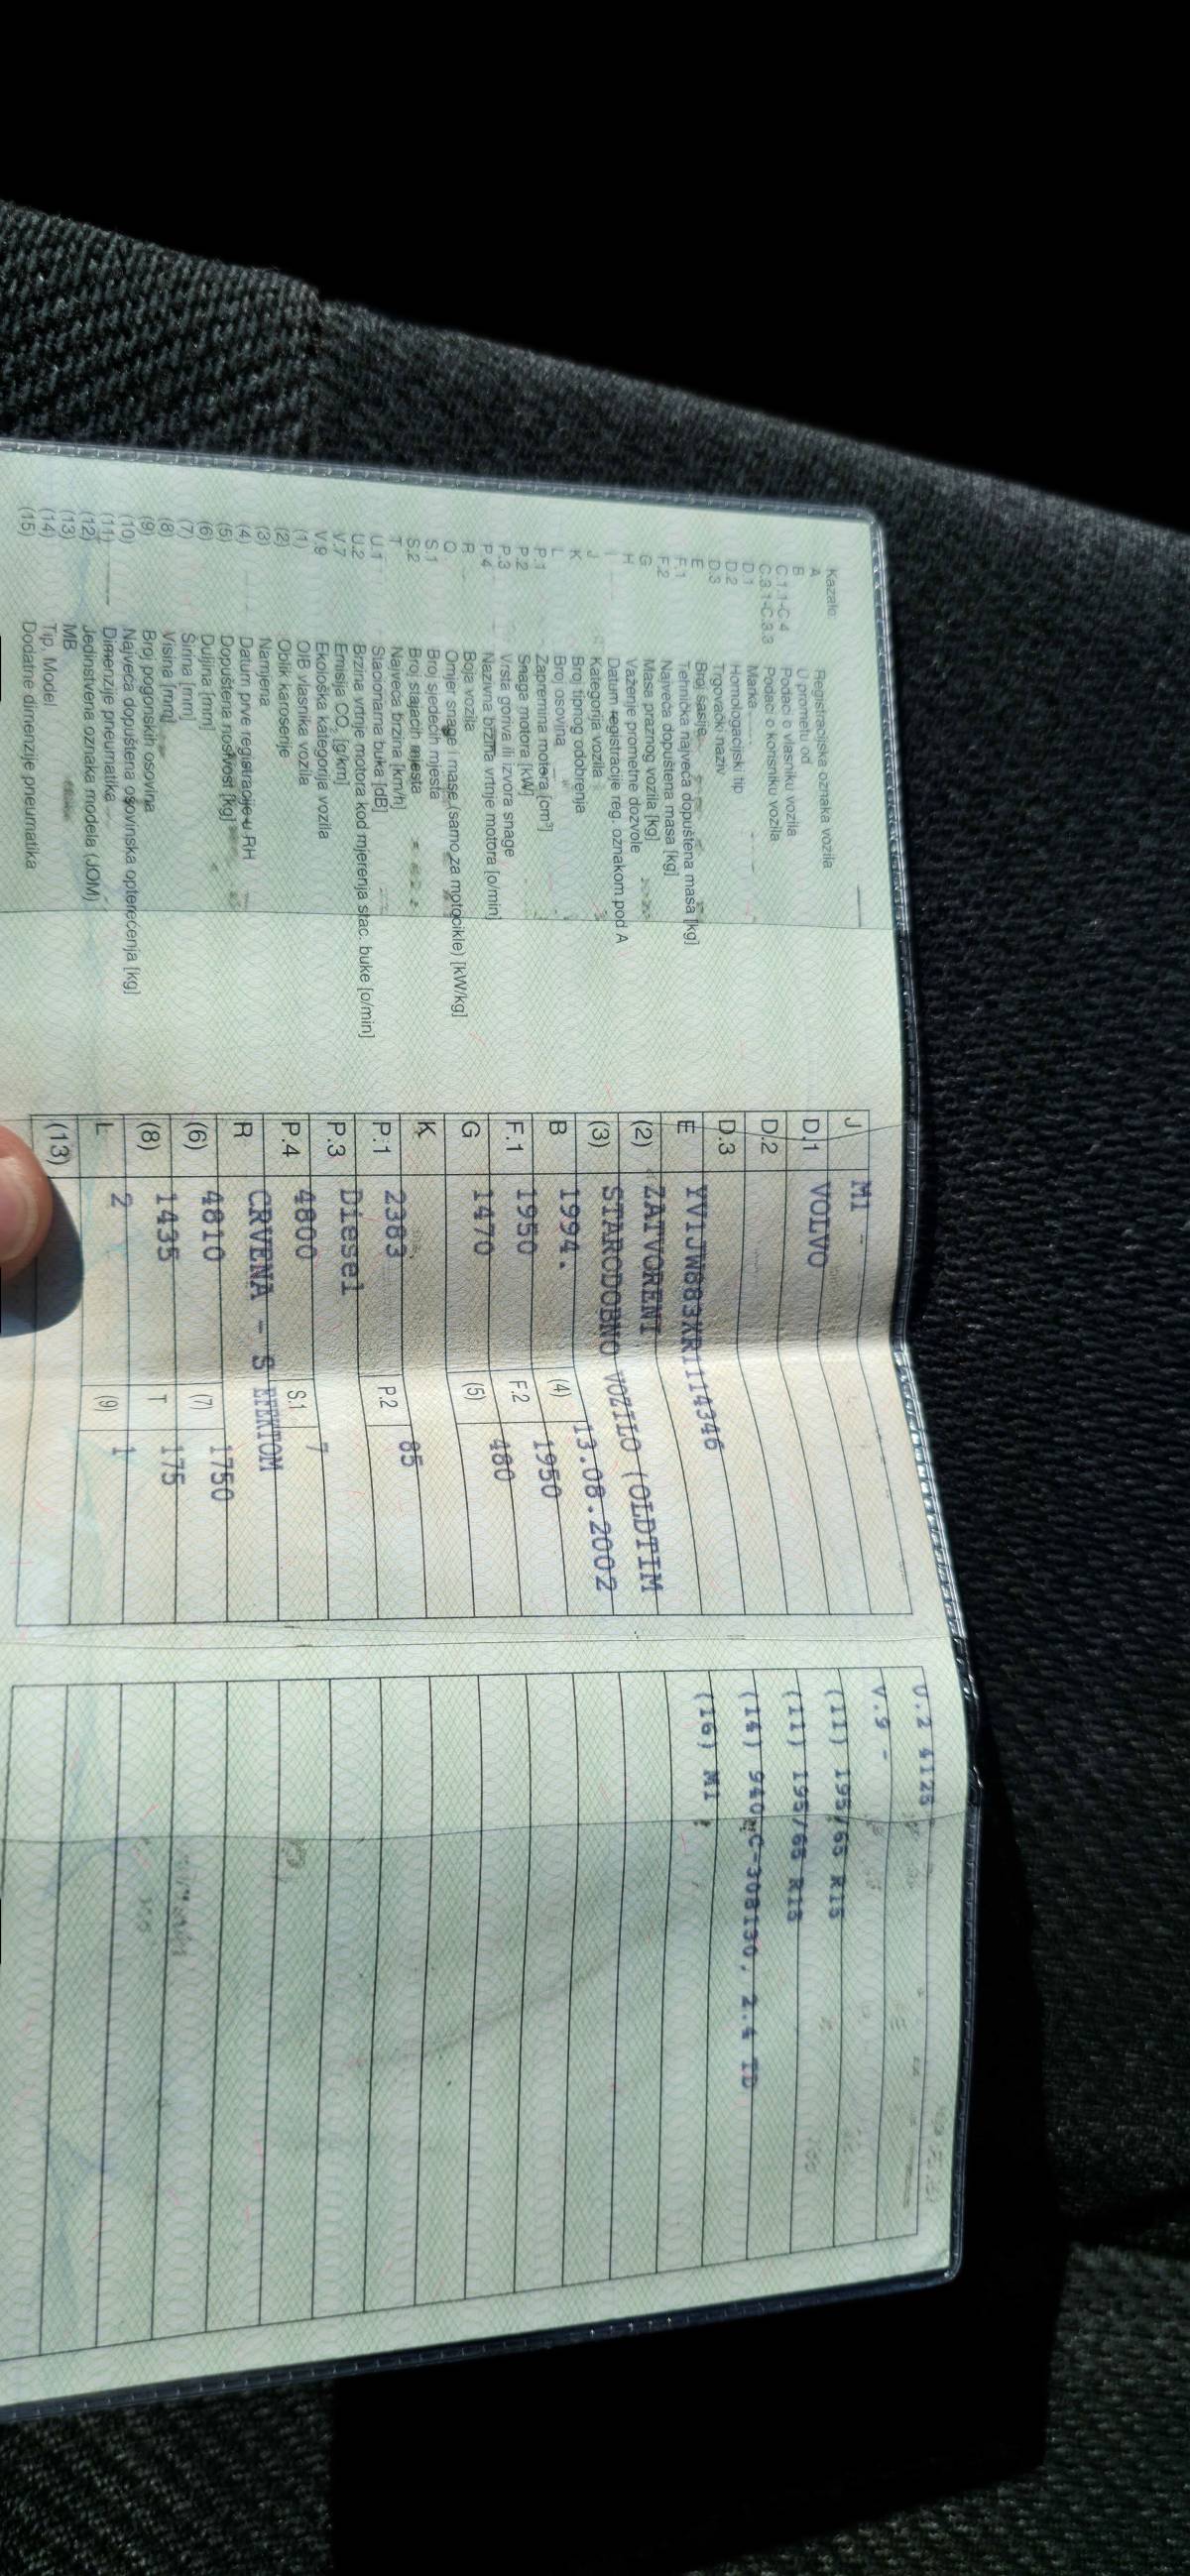 Kazalo:
A Registracijska oznaka vozila
B U prometu od
C.1.1-C.4 Podaci o vlasniku vozila
C.3.1-C.3.3 Podaci o korisniku vozila
D.1 Marka
D.2 Homologacijski tip
D.3 Trgovački naziv
E Broj šasije
F.1 Tehnička najveća dopuštena masa [kg]
F.2 Najveća dopuštena masa [kg]
G Masa praznog vozila [kg]
H Važenje prometne dozvole
I Datum registracije reg. oznakom pod A
J Kategorija vozila
K Broj tipnog odobrenja
L Broj osovina
P.1 Zapremina motora [cm³]
P.2 Snaga motora [kW]
P.3 Vrsta goriva ili izvora snage
P.4 Nazivna brzina vrtnje motora [o/min]
R Boja vozila
Q Omjer snage i mase (samo za motocikle) [kW/kg]
S.1 Broj sjedećih mjesta
S.2 Broj stajaćih mjesta
T Najveća brzina [km/h]
U.1 Stacionarna buka [dB]
U.2 Brzina vrtnje motora kod mjerenja stac. buke [o/min]
V.7 Emisija CO₂ [g/km]
V.9 Ekološka kategorija vozila
(1) OIB vlasnika vozila
(2) Oblik karoserije
(3) Namjena
(4) Datum prve registracije u RH
(5) Dopuštena nosivost [kg]
(6) Duljina [mm]
(7) Širina [mm]
(8) Visina [mm]
(9) Broj pogonskih osovina
(10) Najveća dopuštena osovinska opterećenja [kg]
(11) Dimenzije pneumatika
(12) Jedinstvena oznaka modela (JOM)
(13) MB
(14) Tip, Model
(15) Dodatne dimenzije pneumatika
J M1
D.1 VOLVO
D.2
D.3
E YV1JW883XR1114346
(2) ZATVORENI
(3) STARODOBNO VOZILO (OLDTIM
B 1994. (4) 13.08.2002
F.1 1950 F.2 1950
G 1470 (5) 480
K
P.1 2383 P.2 85
P.3 Diesel
P.4 4800 S.1 7
R CRVENA - S EFEKTOM
(6) 4810 (7) 1750
(8) 1435 T 175
L 2 (9) 1
(13)
U.2 4125
V.9 -
(11) 195/65 R15
(11) 195/65 R15
(14) 940, C-308130, 2.4 TD
(16) M1